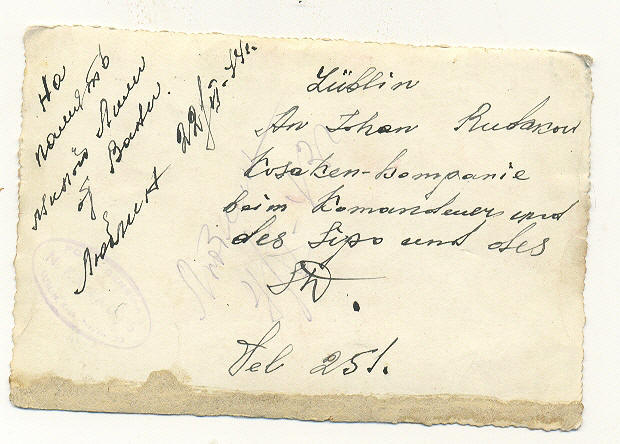 На
память
милой Лили
от Вани.
Люблин 22/VI-44г.
Lüblin
An Iohan Rudakow
Kosaken-Kompanie
beim Komandeuers und
des Sipo und des
SD.
Tel 251.